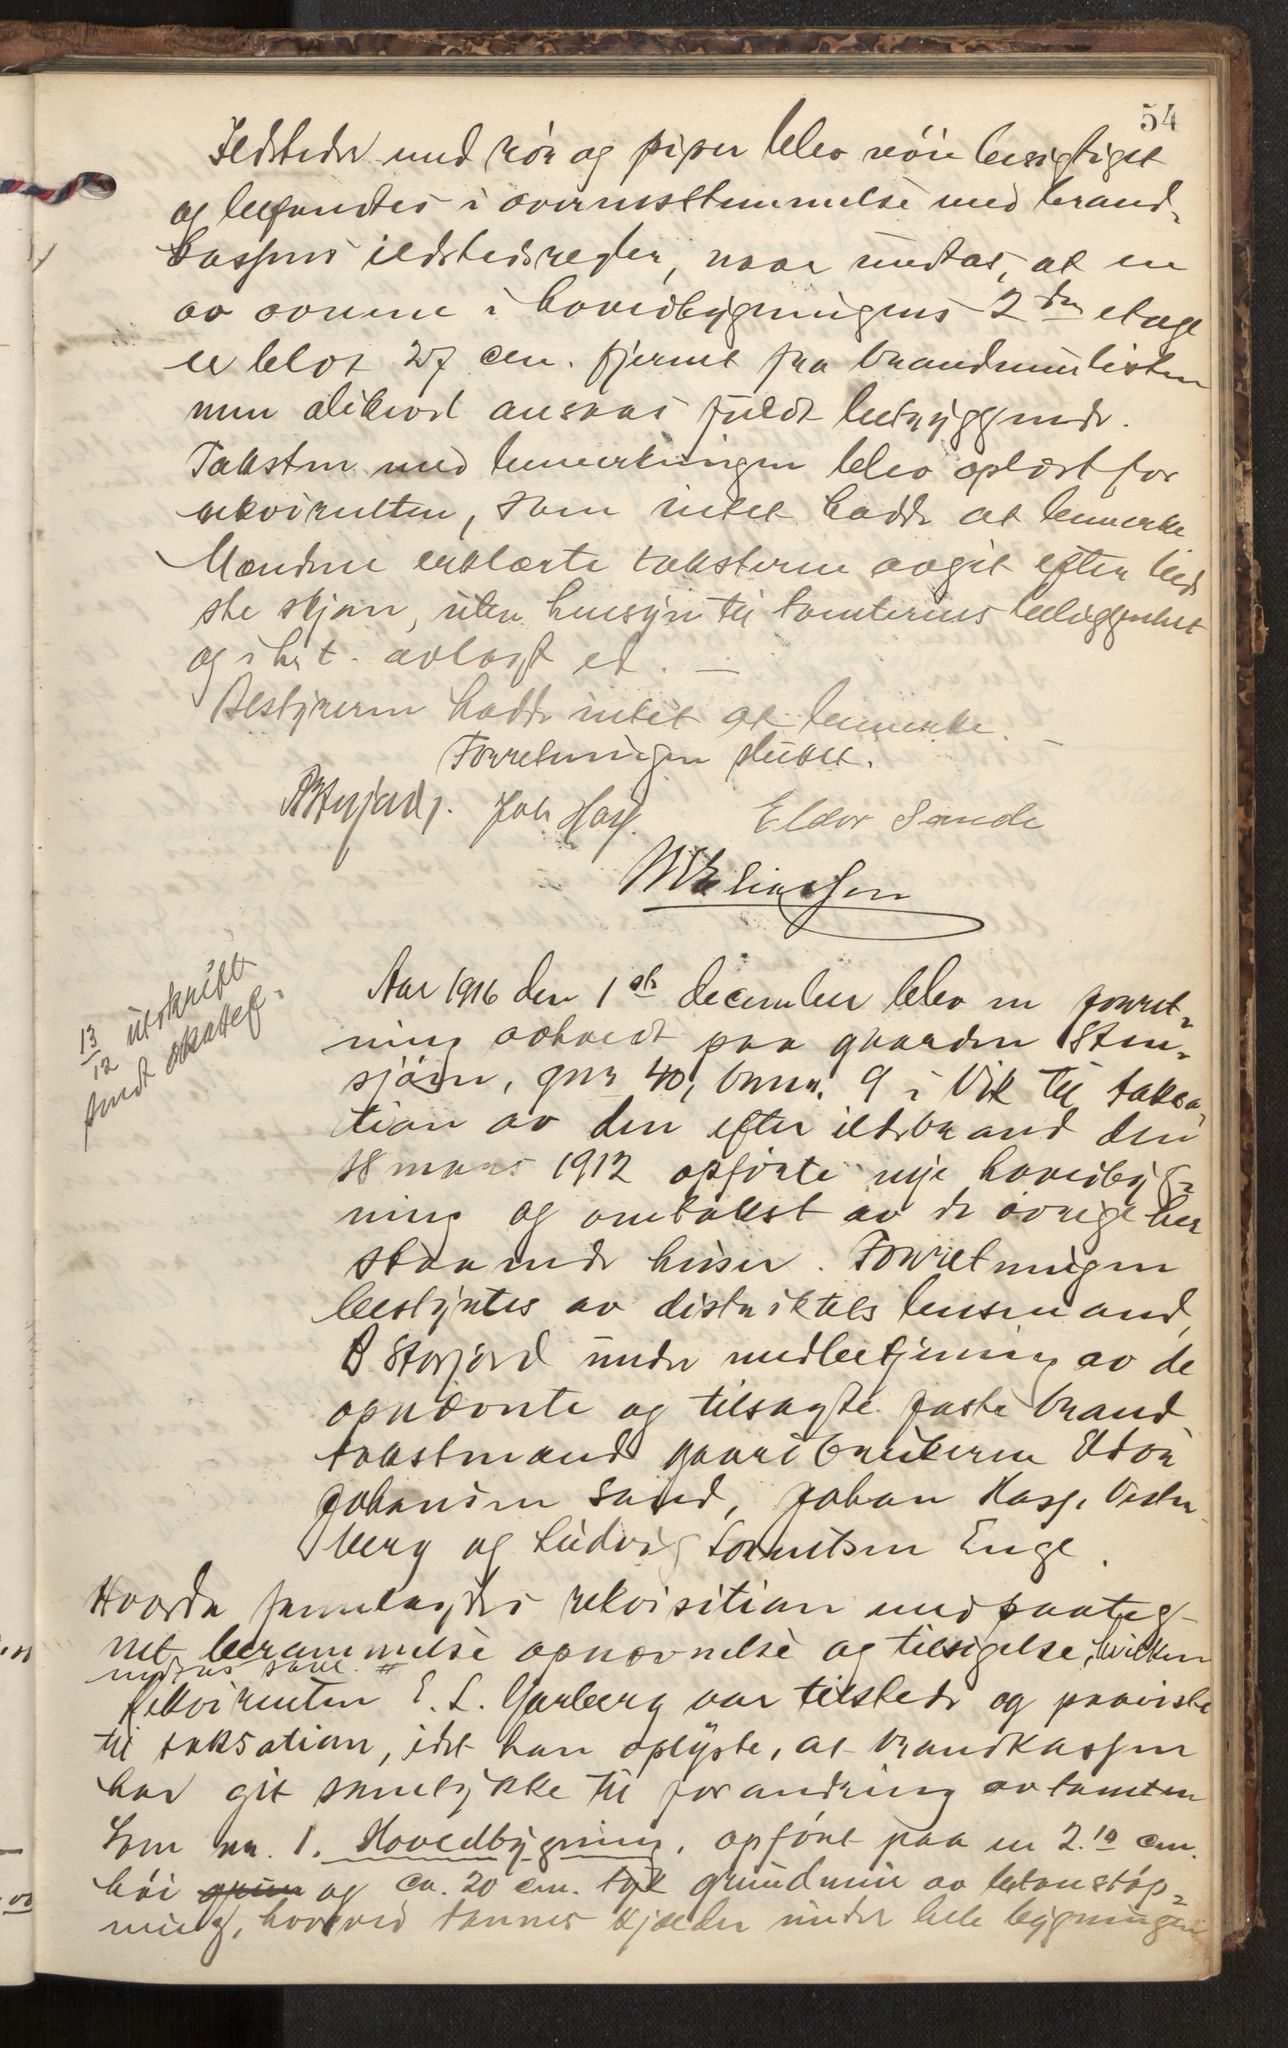 54
Ildsteder med rör og piper blev nöie besigtiget
og befandtes i overensstemmelse med brand-
kassens ildstedsregler, naar undtas, at en
av ovnene i hovedbygningens 2den etage
er blot 27 cm. fjernet fra brandmurlisten
men alikevel ansaaes fuldt betryggende.
Taksten med bemerkningen blev oplæst for
rekvirenten, som intet hadde at bemerke
Mændene erklærte taksterne avgit efter bed-
ste skjøn, uten hensyn til tomternes beliggenhet
og i h. t. avlagt ed. —
Bestyreren hadde intet at bemerke. —
Forretningen sluttet.
B Storjord. Joh Hasf. Eldor Sande
Aar 1916 den 1ste december blev en forret-
ning avholdt paa gaarden Sten-
sjöen, gnr 40, brnr. 9 i Vik til taksa-
tion av den efter ildsbrand den
18 mars 1912 opførte nye hovedbyg-
ning og omtakst av de övrige her
staaende huser. Forretningen
bestyrtes av distriktets lensmand,
B Storjord under medbetjening av de
opnævnte og tilsagte faste brand
takstmænd gaardbrukerne Eldor
Johansen Sand, Johan Hasf. Vester
berg og Ludvig Lorentsen Enge.
13/12 utskrift
sendt skatef.
Hvorda fremlagdes rekvisition med paateg-
net berammelse opnævnelse og tilsigelse, hvilken
Rekvirenten E. L. Garberg var tilstede og paaviste
til taksation, idet han oplyste, at brandkassen
har git samtykke til forandring av tomten
Som nr. 1. Hovedbygning, opført paa en 2.10 cm.
höi og ca. 20 cm. tyk grundmur av betonstøp-
ning, hvorved dannes kjælder under hele bygningen